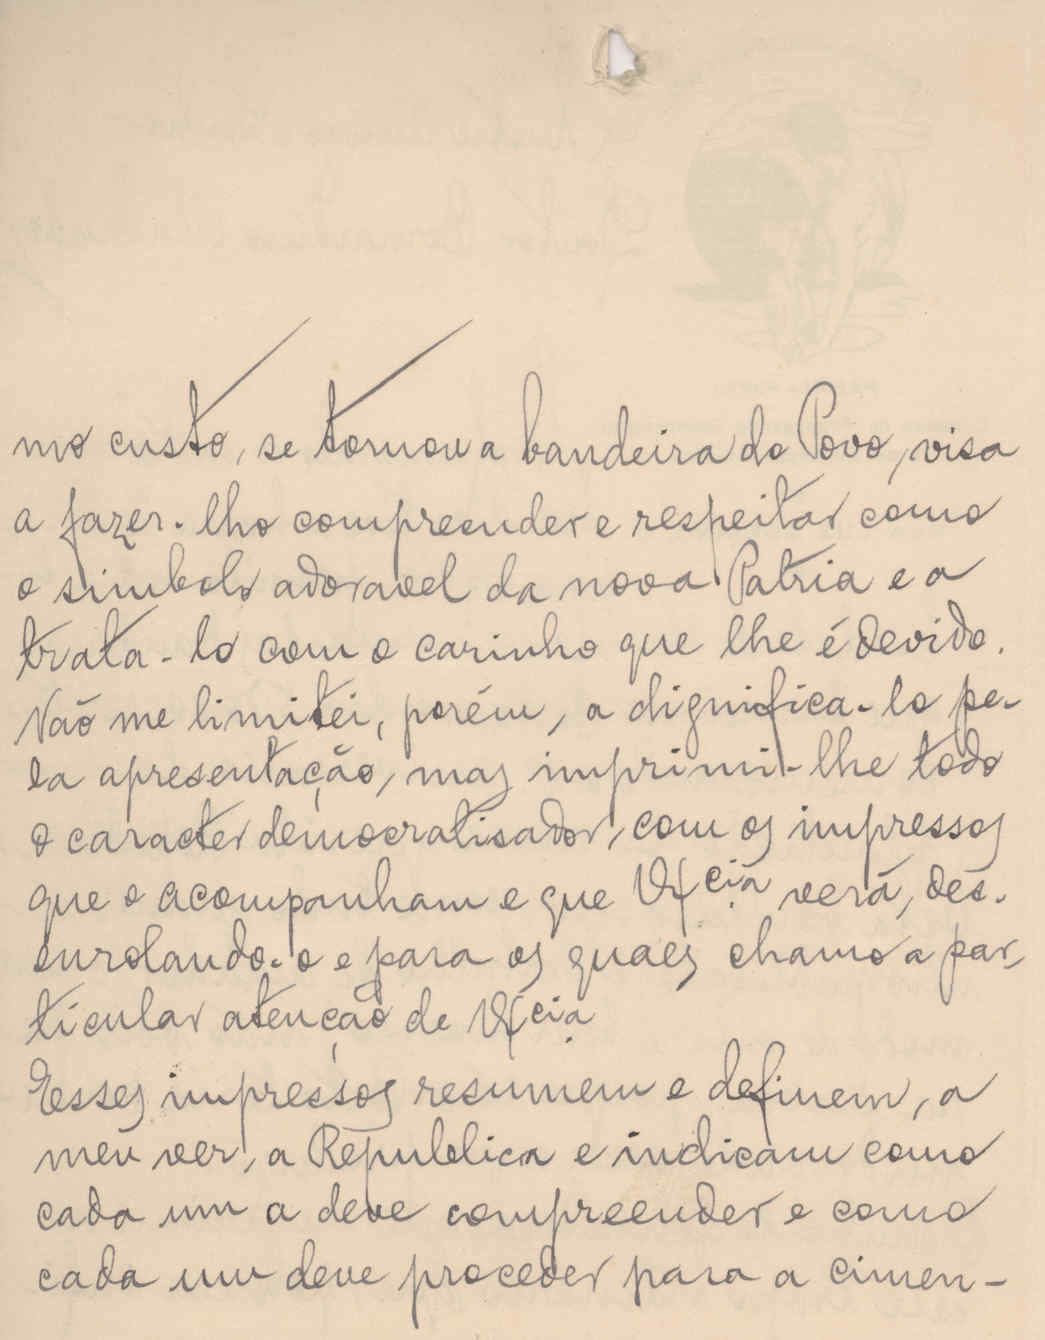 mo custo, se tornou a bandeira do Povo, visa
a fazer-lho compreender e respeitar como
o simbolo adoravel da nova Patria e a
trata-lo com o carinho que lhe é devido.
Não me limitei, porém, a dignifica-lo pe-
la apresentação, mas imprimi-lhe todo
o caracter democratisador, com os impressos
que o acompanham e que V.Ex.cia verá, des-
enrolando-o e para os quaes chamo a par-
ticular atenção de V.Ex.cia
Esses impressos resumem e definem, a
meu ver, a Republica e indicam como
cada um a deve compreender e como
cada um deve proceder para a cimen-